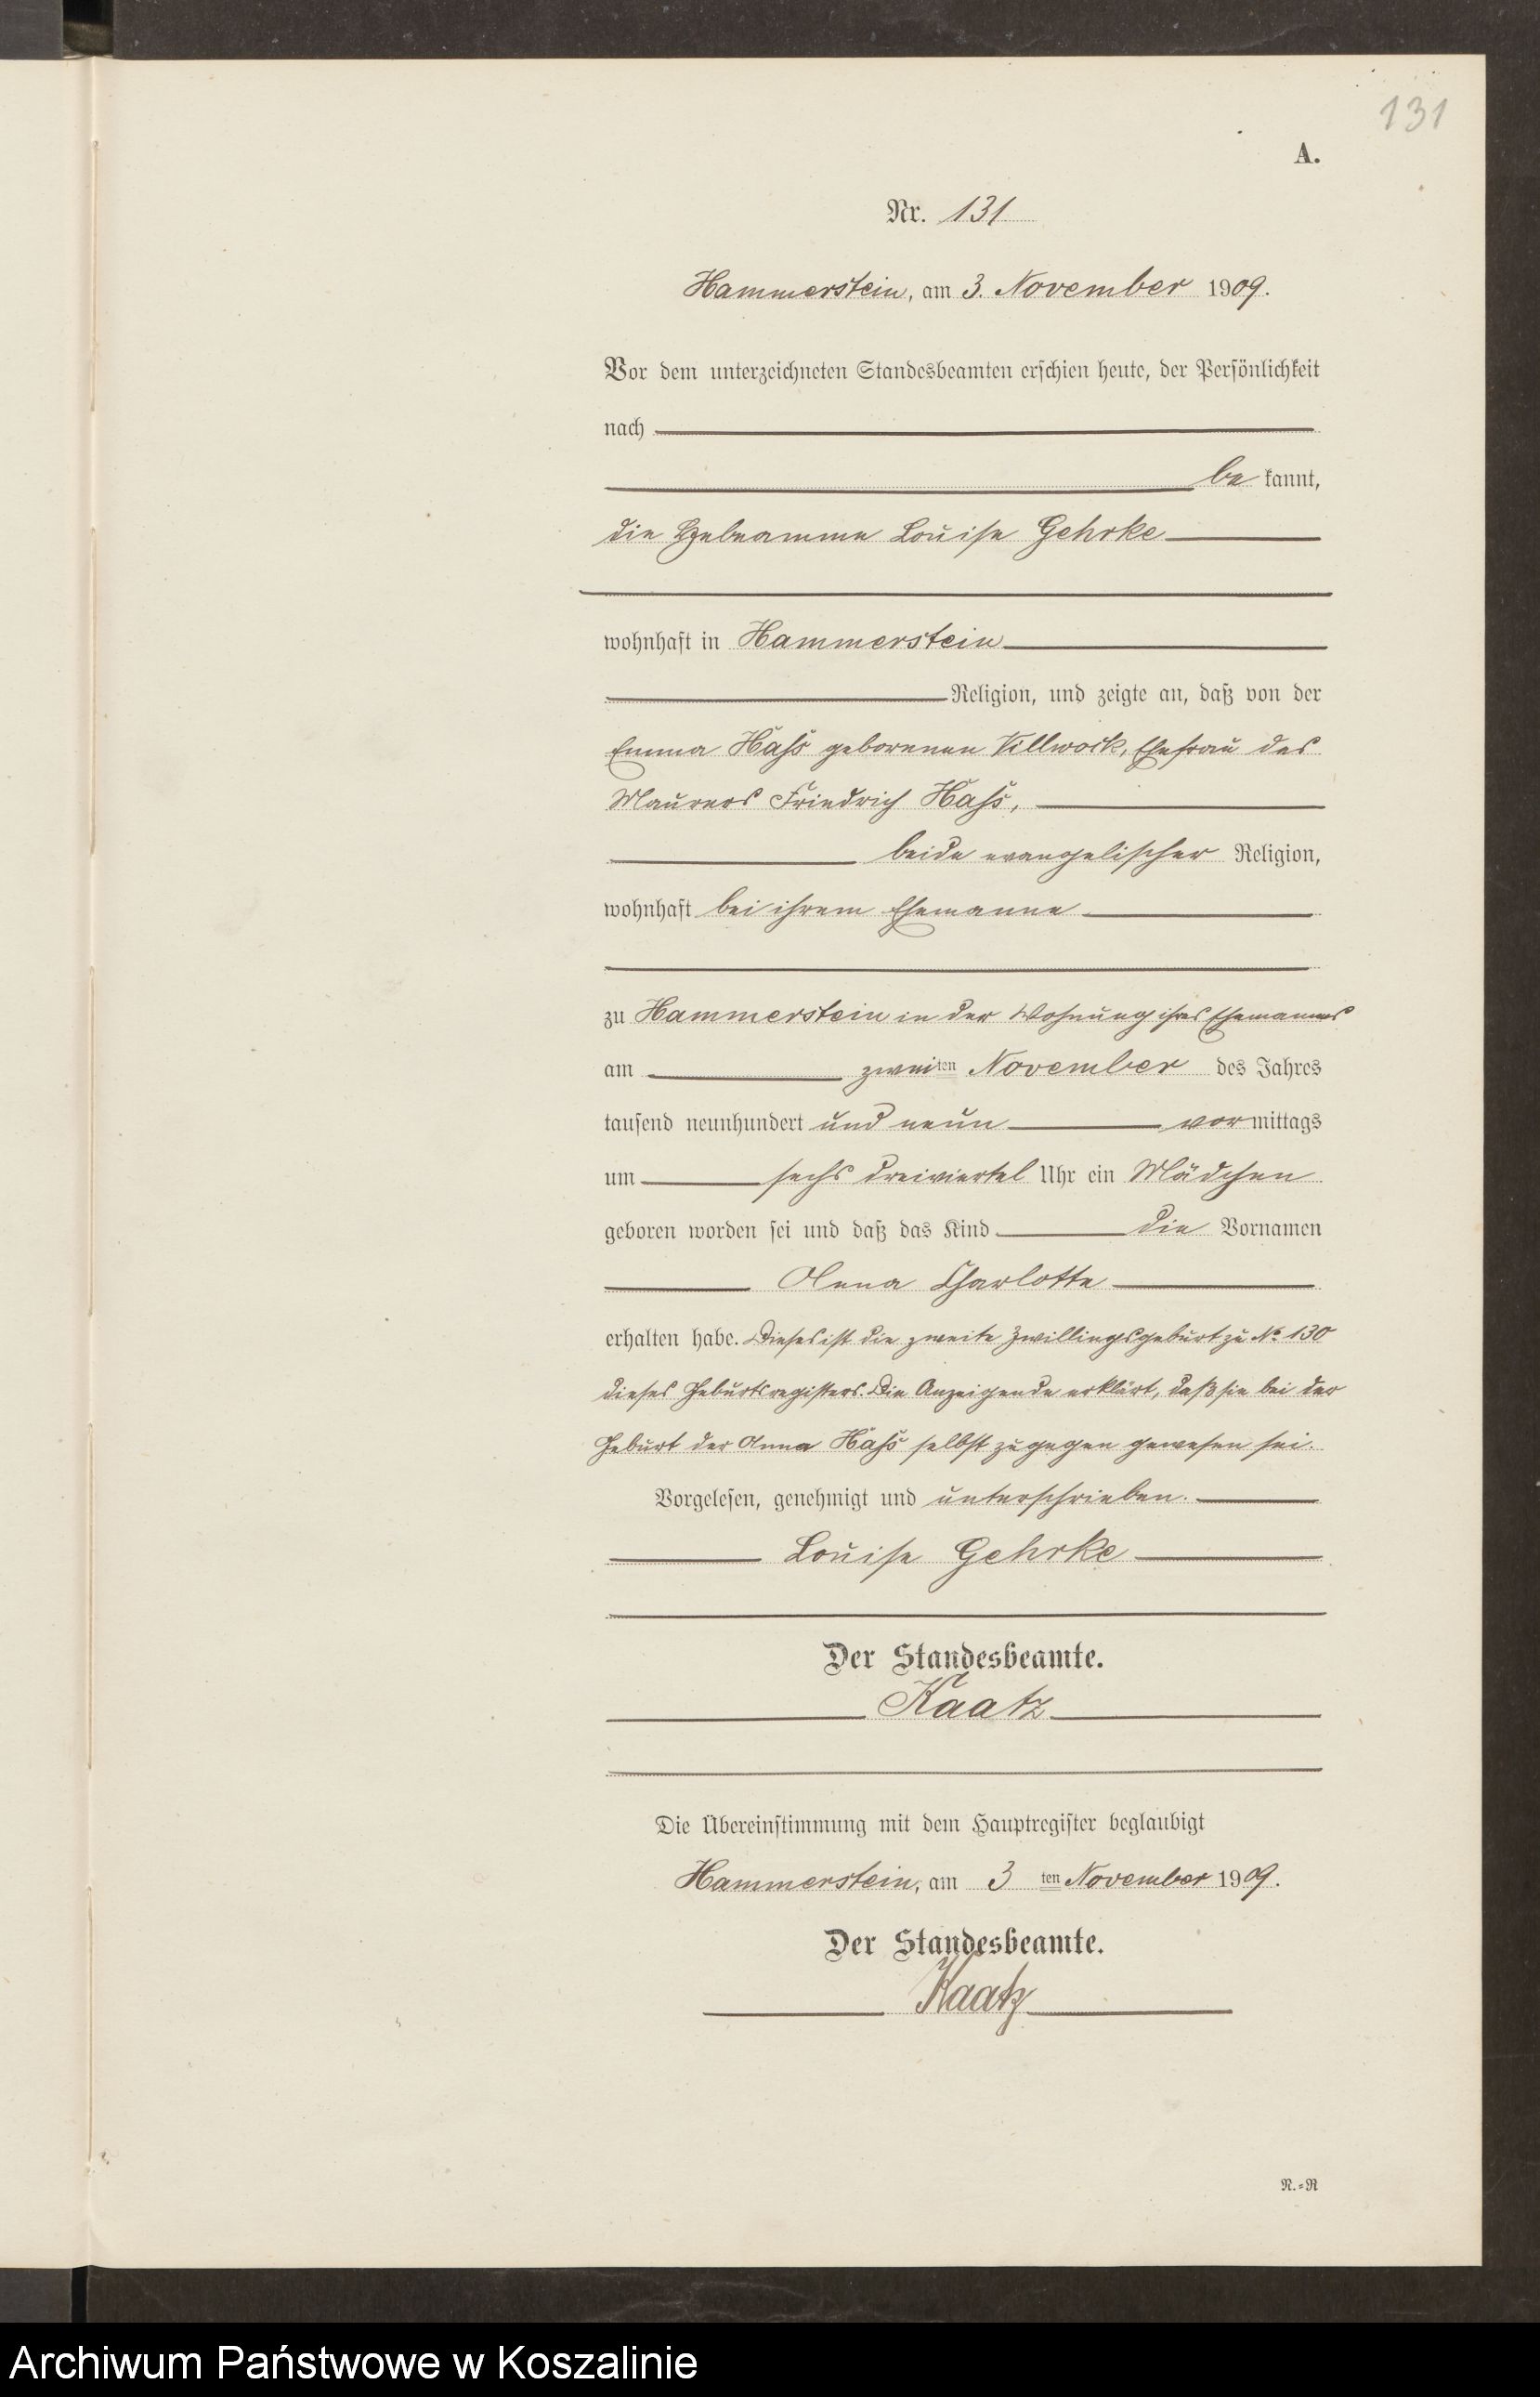 131
A.
Nr. 131
Hammerstein, am 3. November 1909.
Vor dem unterzeichneten Standesbeamten erschien heute, der Persönlichkeit
nach
be kannt,
die Hebeamme Louise Gehrke
wohnhaft in Hammerstein
Religion, und zeigte an, daß von der
Emma Haß geborenen Villwock, Ehefrau des
Maurers Friedrich Haß,
beide evangelischer Religion,
wohnhaft bei ihrem Ehemanne
zu Hammerstein in der Wohnung ihres Ehemannes
am zweiten November des Jahres
tausend neunhundert und neun vormittags
um sechs dreiviertel Uhr ein Mädchen
geboren worden sei und daß das Kind die Vornamen
Anna Charlotte
erhalten habe. Dieses ist die zweite Zwillingsgeburt zu № 130
dieses Geburtsregisters. Die Anzeigende erklärt, daß sie bei der
Geburt der Anna Haß selbst zugegen gewesen sei.
Vorgelesen, genehmigt und unterschrieben.
Louise Gehrke
Der Standesbeamte.
Kaatz
Die Übereinstimmung mit dem Hauptregister beglaubigt
Hammerstein, am 3 ten November 1909.
Der Standesbeamte.
Kaatz
N.=R
Archiwum Państwowe w Koszalinie